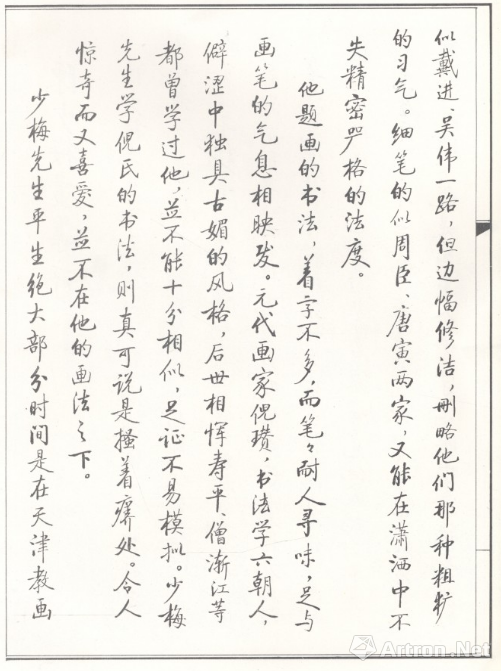 似戴进、吴伟一路，但边幅修洁，删略他们那种粗犷
的习气。细笔的似周臣、唐寅两家，又能在潇洒中不
失精密严格的法度。
他题画的书法，着字不多，而笔々耐人寻味，足与
画笔的气息相映发。元代画家倪瓒，书法学六朝人，
僻涩中独具古媚的风格，后世相恽寿平、僧渐江等
都曾学过他，並不能十分相似，足证不易模拟。少梅
先生学倪氏的书法，则真可说是搔着痒处。令人
惊奇而又喜愛，並不在他的画法之下。
少梅先生平生绝大部分时间是在天津教画
Artron.Net